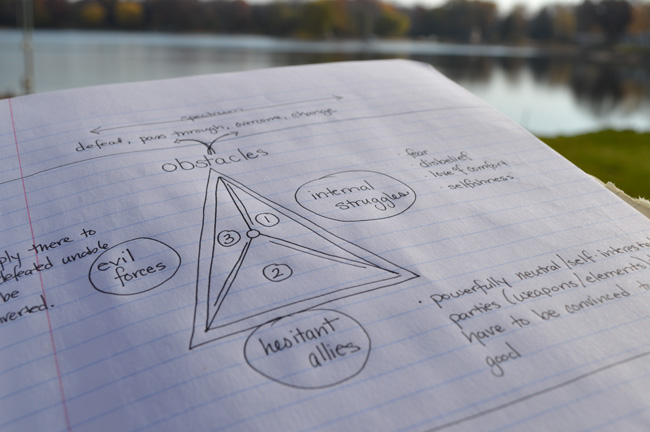 spectrum
defeat, pass through, overcome, change
obstacles
internal
struggles
fear
disbelief
love of comfort
selfishness
1
3
2
evil
forces
ply there to
defeated unable
be
verted.
hesitant
allies
powerfully neutral/self-interested
parties (weapons/elements)
have to be convinced to
good